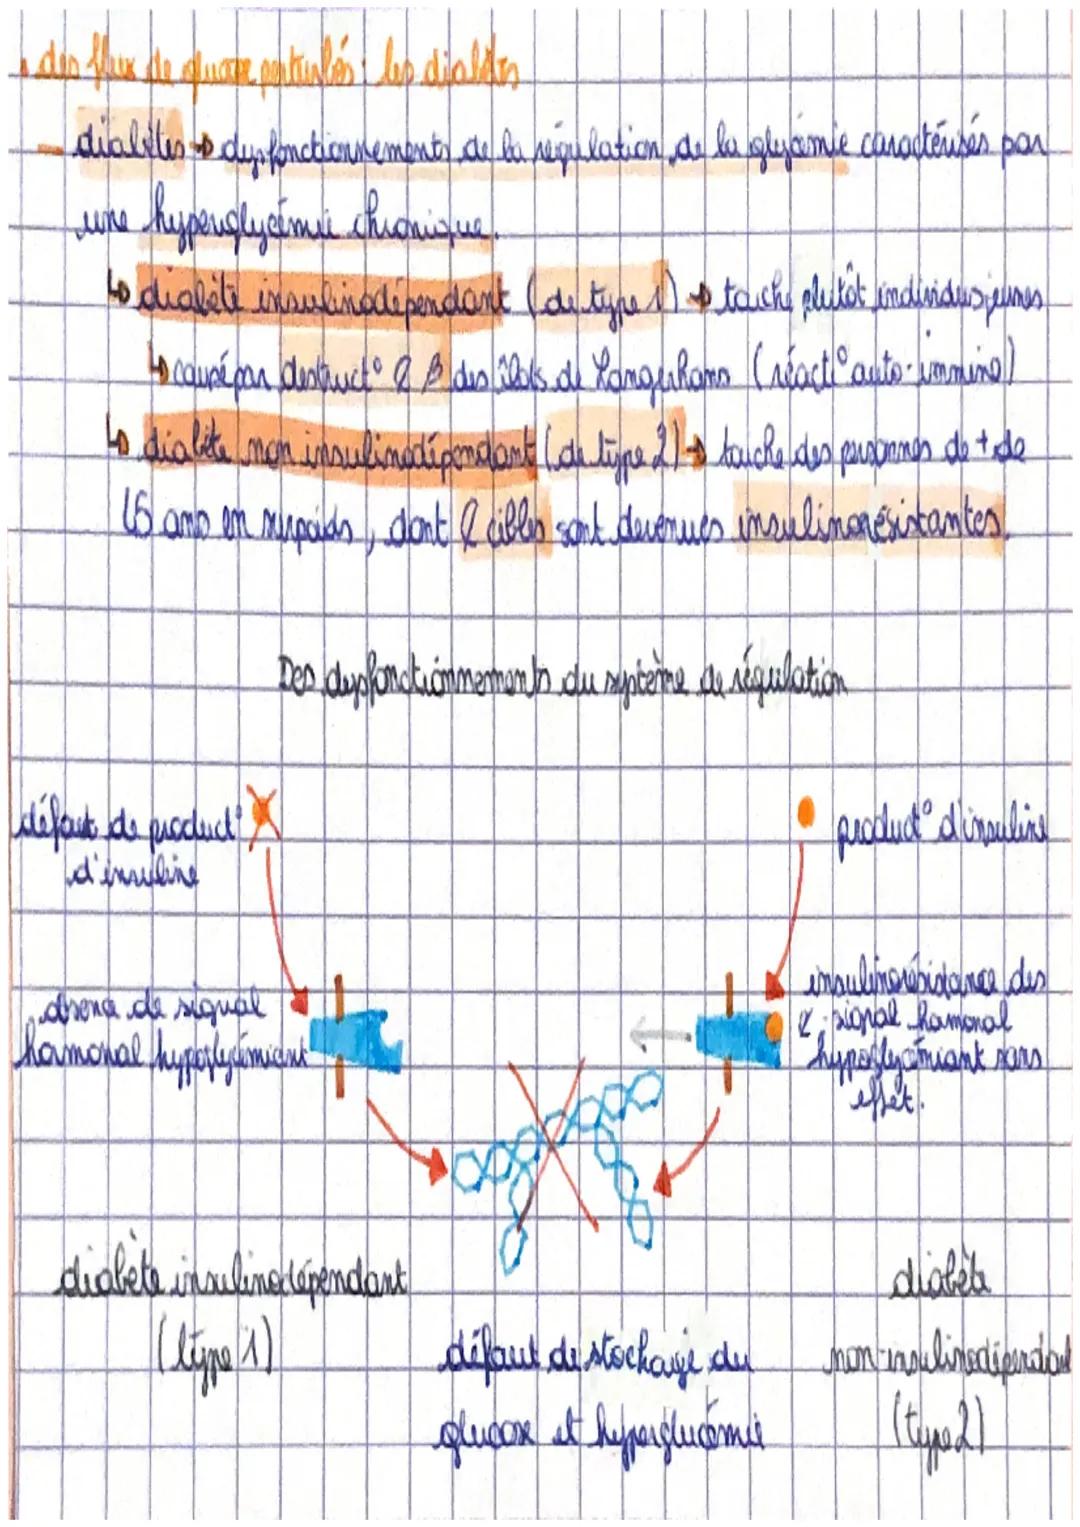 • des flux de glucose perturbés : les diabètes
- diabètes → dysfonctionnements de la régulation de la glycémie caractérisés par
une hyperglycémie chronique.
↳ diabète insulinodépendant (de type 1) → touche plutôt individus jeunes
↳ causé par destruct° β des îlots de Langerhans (réact° auto-immune)
↳ diabète non insulinodépendant (de type 2) → touche des personnes de + de
ans en surpoids, dont cibles sont devenues insulinorésistantes.
Des dysfonctionnements du système de régulation
défaut de product°
d'insuline
product° d'insuline
absence de signal
hormonal hypoglycémiant
insulinorésistance des
signal hormonal
hypoglycémiant sans
effet.
diabète insulinodépendant
(type 1)
défaut de stockage du
glucose et hyperglucémie
diabète
non-insulinodépendant
(type 2)